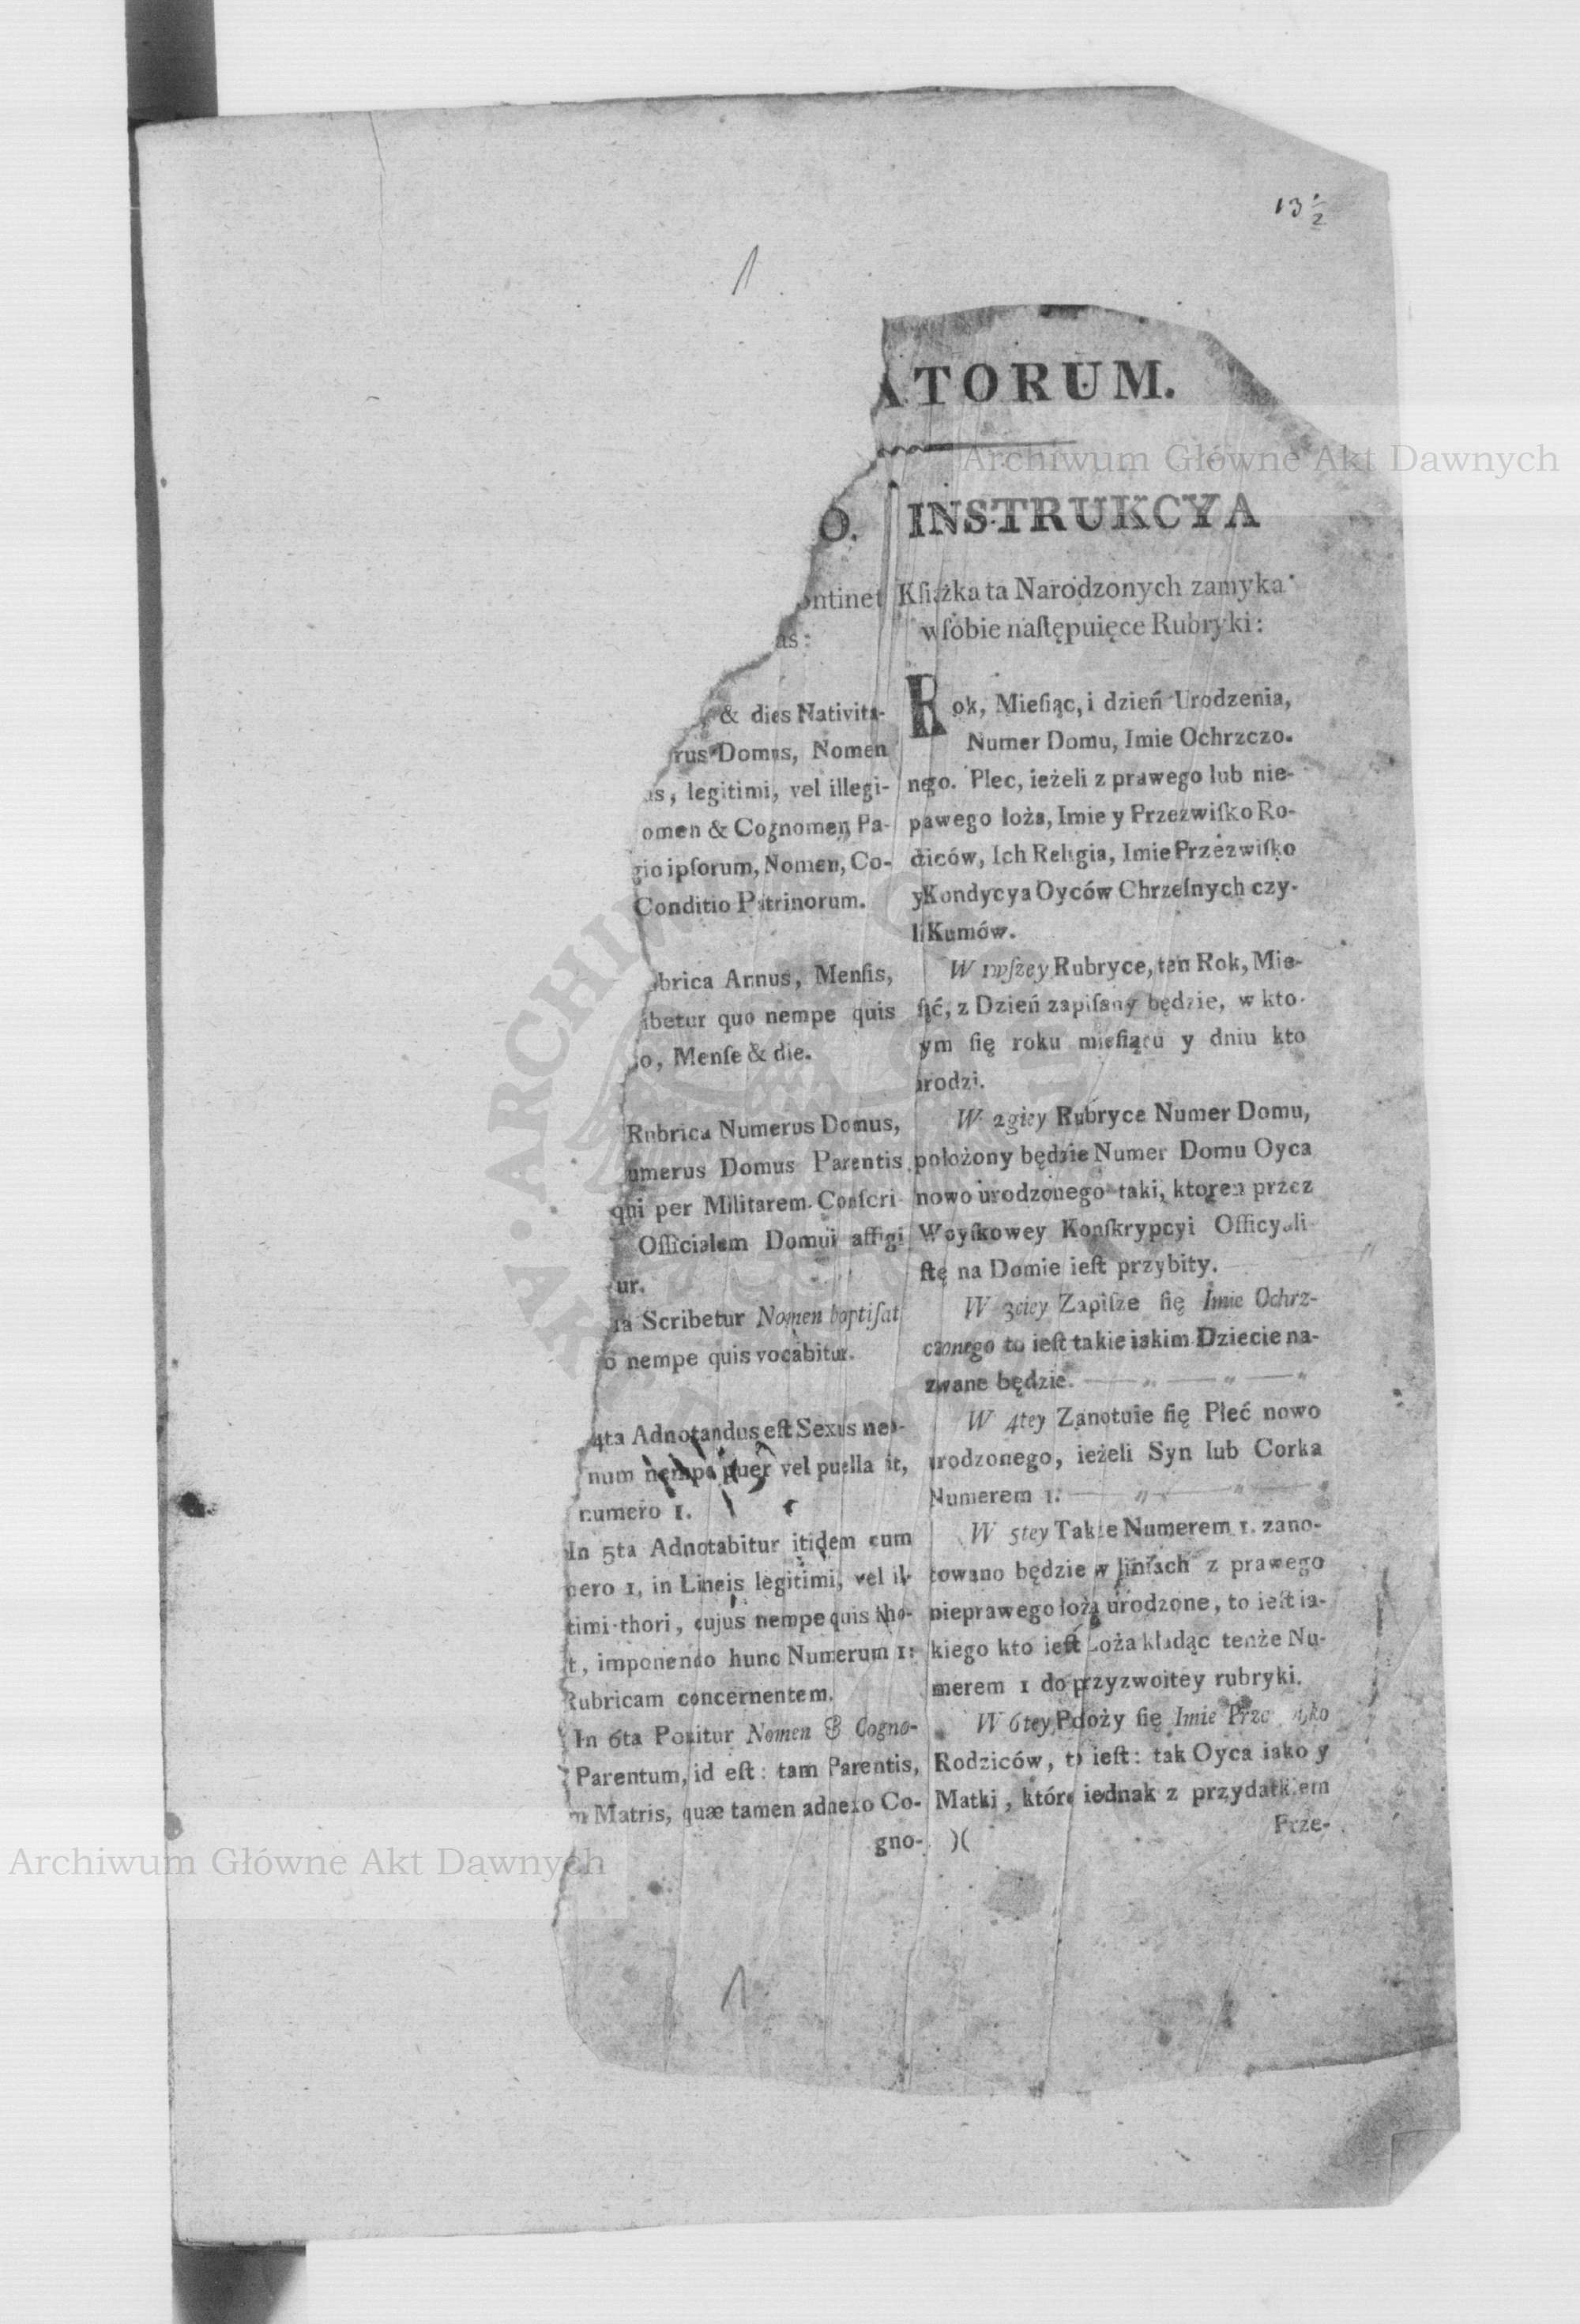 13 1/2
1
ATORUM.
O.
ontinet
as:
, & dies Nativita-
rus Domus, Nomen
us, legitimi, vel illegi-
omen & Cognomen Pa-
gio ipſorum, Nomen, Co-
Conditio Patrinorum.
brica Annus, Menſis,
ibetur quo nempe quis
o, Menſe & die.
Rubrica Numerus Domus,
umerus Domus Parentis
qui per Militarem Conſcri-
Officialem Domui affigi
ur.
ia Scribetur Nomen baptiſat
o nempe quis vocabitur.
4ta Adnotandus eſt Sexus neo-
num nempe puer vel puella ſit,
numero 1.
In 5ta Adnotabitur itidem cum
nero 1, in Lineis legitimi, vel il-
timi thori, cujus nempe quis tho-
t, imponendo hunc Numerum 1:
Rubricam concernentem.
In 6ta Ponitur Nomen & Cogno-
Parentum, id eſt: tam Parentis,
m Matris, quæ tamen adnexo Co-
gno-
INSTRUKCYA
Kſiążka ta Narodzonych zamyka
w ſobie naſtępuięce Rubryki:
Rok, Mieſiąc, i dzień Urodzenia,
Numer Domu, Imie Ochrzczo-
nego. Plec, ieżeli z prawego lub nie-
pawego loża, Imie y Przezwiſko Ro-
dziców, Ich Religia, Imie Przezwiſko
y Kondycya Oyców Chrzeſnych czy-
li Kumów.
W 1wſzey Rubryce, ten Rok, Mie-
ſiąć, z Dzień zapiſany będzie, w kto-
rym ſię roku mieſiącu y dniu kto
urodzi.
W 2giey Rubryce Numer Domu,
położony będzie Numer Domu Oyca
nowo urodzonego taki, ktoren przez
Woyſkowey Konſkrypcyi Officyali-
ſtę na Domie ieſt przybity.
W 3ciey Zapiſze ſię Imie Ochrz-
czonego to ieſt takie iakim Dziecie na-
zwane będzie. — „ — „ — „
W 4tey Zanotuie ſię Płeć nowo
urodzonego, ieżeli Syn lub Corka
Numerem 1. — „ — „ — „
W 5tey Takie Numerem 1. zano-
towano będzie w liniach z prawego
nieprawego łoża urodzone, to ieſt ia-
kiego kto ieſt Loża kładąc tenże Nu-
merem 1 do przyzwoitey rubryki.
W 6tey Położy ſię Imie
Rodziców, to ieſt: tak Oyca iako y
Matki, które iednak z przydatkiem
)( Prze-
1
Archiwum Główne Akt Dawnych
Archiwum Główne Akt Dawnych